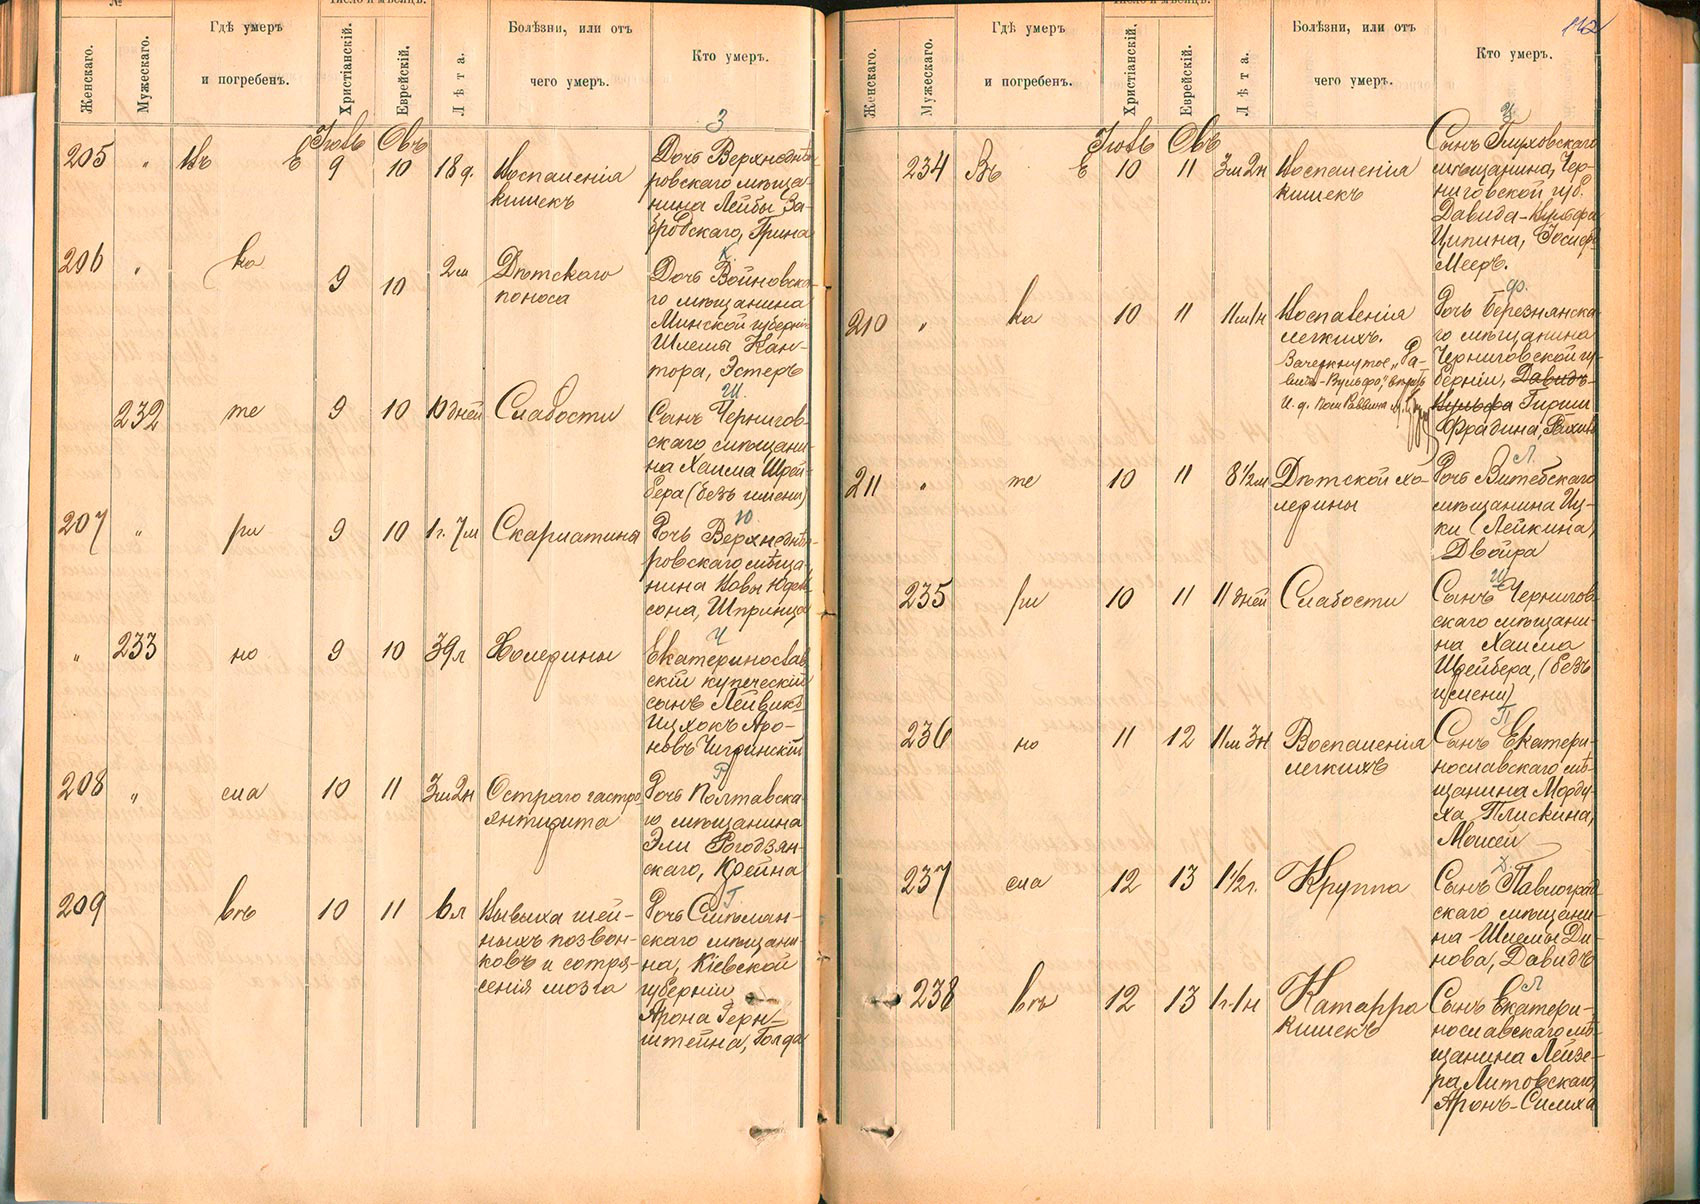 №
Число и мѣсяцъ.
Женскаго.
Мужескаго.
Гдѣ умеръ
и погребенъ.
Христіанскій.
Еврейскій.
Лѣта.
Болѣзни, или отъ
чего умеръ.
Кто умеръ.
З
Іюль Овъ
205 " Въ Е 9 10 18 д. Воспаленія
кишекъ
Дочь Верхнеднѣ-
ровскаго мѣща-
нина Лейбы За-
бродскаго, Грина
К
206 " ка 9 10 2 м Дѣтскаго
поноса
Дочь Войновска-
го мѣщанина
Минской губерніи
Шлемы Кан-
тора, Эстеръ
Ш
232 те 9 10 10 дней Слабости
Сынъ Чернигов-
скаго мѣщани-
на Хаима Шрей-
бера (безъ имени)
Ю
207 " ри 9 10 1 г. 7 м Скарлатина
Дочь Верхнеднѣ-
ровскаго мѣща-
нина
сона, Шпринца
Ч
" 233 но 9 10 39 л Холерины
Екатеринослав
скій купеческій
сынъ Лейвикъ-
Ицхокъ Аро-
новъ Чигринскій
Р
208 " сла 10 11 3м 2н Остраго гастро
энтерита
Дочь Полтавска-
го мѣщанина
Эли Рогодзян-
скаго, Крейна
Г
209 въ 10 11 6 л Вывиха шей-
ныхъ позвон-
ковъ и сотря-
сенія мозга
Дочь
скаго мѣщани-
на, Кіевской
губерніи
Арона Герн-
штейна, Голда
112
Женскаго.
Мужескаго.
Гдѣ умеръ
и погребенъ.
Число и мѣсяцъ.
Христіанскій.
Еврейскій.
Лѣта.
Болѣзни, или отъ
чего умеръ.
Кто умеръ.
Ц
Іюль Овъ
234 Въ Е 10 11 3м 2н Воспаленія
кишекъ
Сынъ Глуховскаго
мѣщанина, Чер-
ниговской губ.
Давида-Вульфа
Ципина, Іосифъ
Мееръ.
Ф.
210 " ка 10 11 11м 1н Воспаленія
легкихъ.
Зачеркнутое „Да-
видъ-Вульфа,"
И. д. Пом Раввина
Дочь Березнянска-
го мѣщанина
Черниговской гу-
берніи, Давидъ-
Вульфа Гирши
Фрадина, Рахиль
Л
211 " те 10 11 8 1/2 м Дѣтской хо-
лерины
Дочь Витебскаго
мѣщанина Иц-
ки Лейкина,
Двойра
Ш
235 ри 10 11 11 дней Слабости
Сынъ Чернигов-
скаго мѣщани-
на Хаима
Шрейбера, (безъ
имени)
П
236 но 11 12 11м 3н Воспаленія
легкихъ
Сынъ Екатери-
нославскаго мѣ-
щанина Морду-
ха Плискина,
Моисей
237 сла 12 13 1 1/2 г. Круппа
Сынъ Павлоград
скаго мѣщани-
на Шлемы Ди-
нова, Давидъ
Л
238 въ 12 13 1г. 1н Катарра
кишекъ
Сынъ Екатери-
нославскаго мѣ-
щанина Лейзе-
ра Литовскаго,
Аронъ-Симха